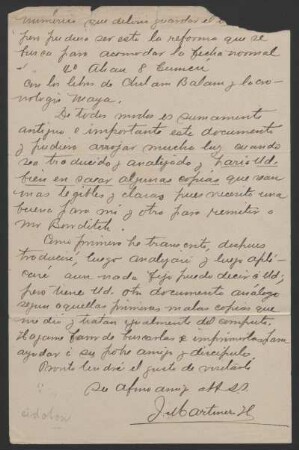 numérico que deben guardar el
pero pudiera ser esta la reforma que se
busca para acomodar la fecha normal
4º Ahau 8 Cumcú
con los libros de Chilan Balam y la cro-
nología Maya.
De todos modos es sumamente
antiguo e importante este documento
y pudiera arrojar mucha luz cuando
sea traducido y analizado y haría Ud.
bien en sacar algunas copias que sean
mas legibles y claras pues necesito una
buena para mí y otra para remitir a
Mr Bowditch.
Como primero he transcrito, después
traduciré, luego analizaré y luego apli-
caré aun nada fijo puedo decir a Ud;
pero tiene Ud. otro documento análogo
segun aquellas primeras malas copias que
me dió y tratan igualmente del computo.
Hagame favor de buscarlas e imprimirlas para
ayudar á su pobre amigo y discípulo.
Pronto tendré el gusto de visitarlo
Su afmo amigo att SS
J. Martinez H